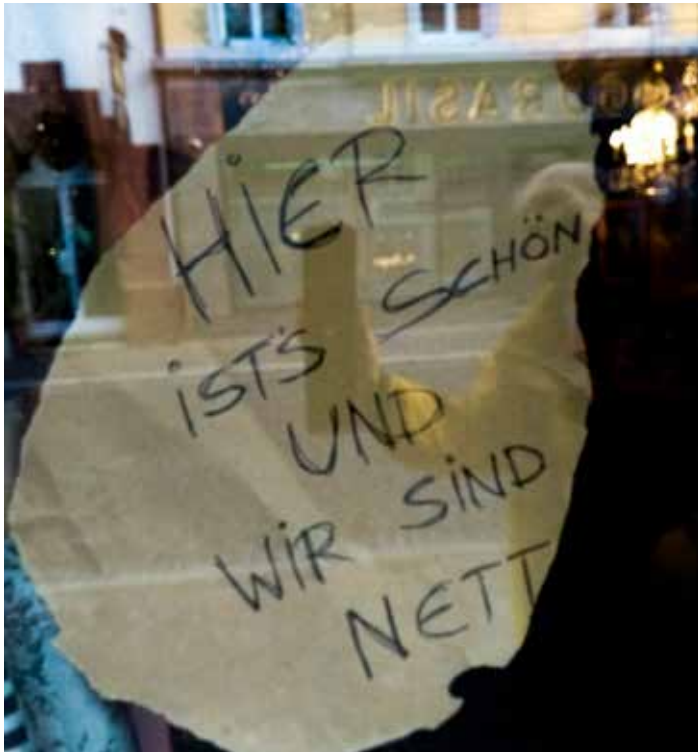 HiER
iST'S SCHÖN
UND
WiR SiND
NETT